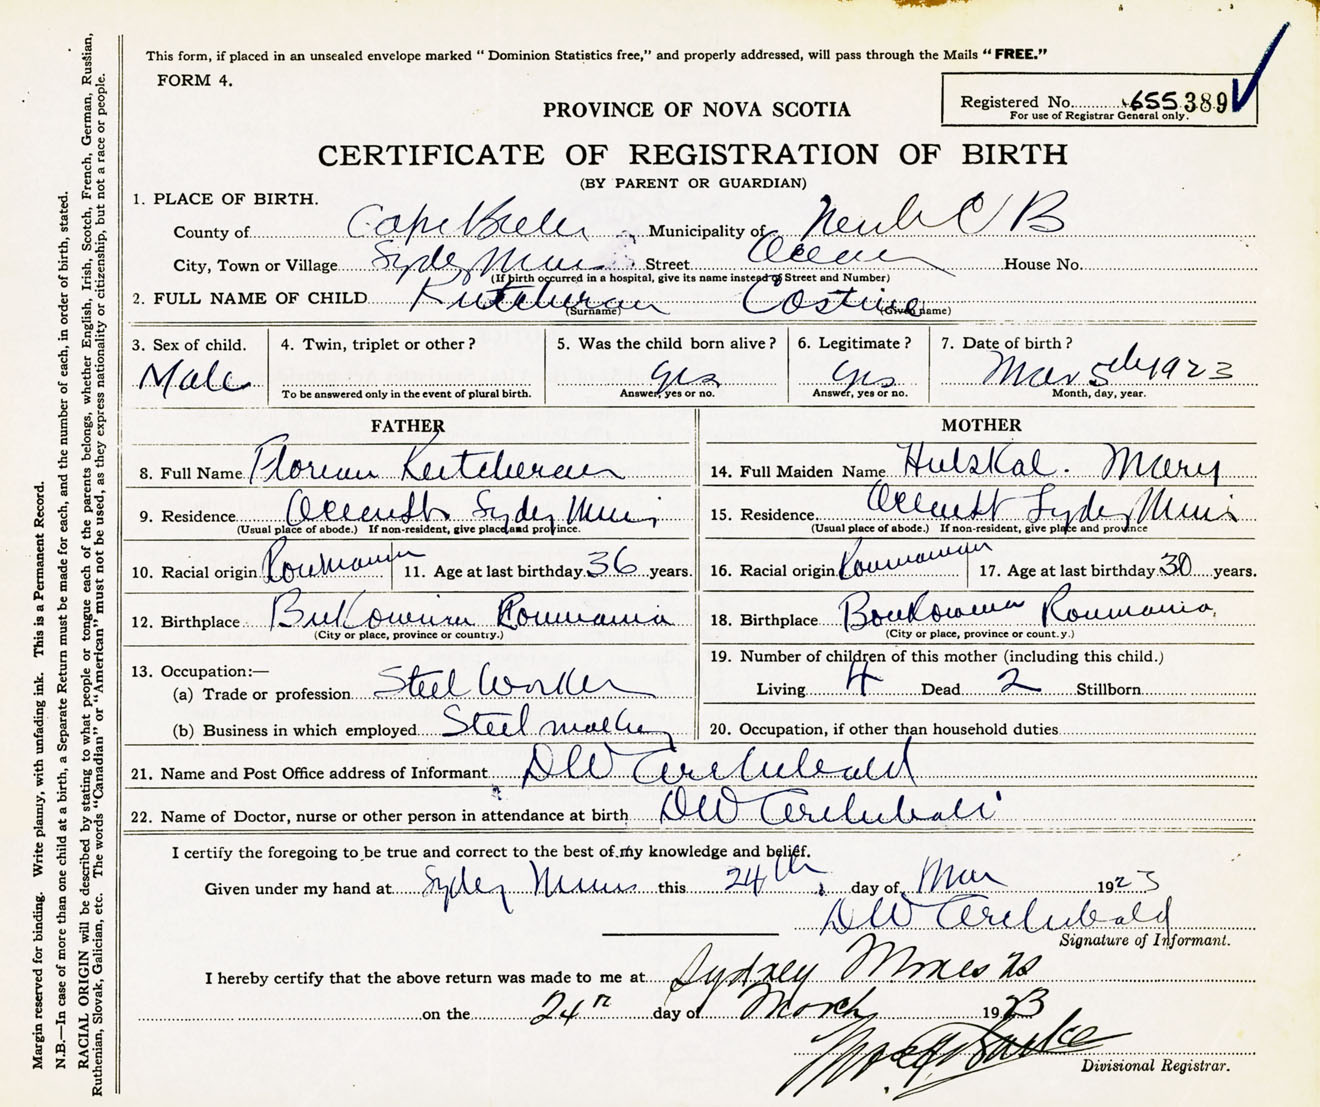 This form, if placed in an unsealed envelope marked " Dominion Statistics free," and properly addressed, will pass through the Mails " FREE."
FORM 4.
Registered No. 655389
For use of Registrar General only.
PROVINCE OF NOVA SCOTIA
CERTIFICATE OF REGISTRATION OF BIRTH
(BY PARENT OR GUARDIAN)
1. PLACE OF BIRTH.
County of Cape Breton Municipality of C B
City, Town or Village Sydney Mines Street Ocean House No.
(If birth occurred in a hospital, give its name instead of Street and Number)
2. FULL NAME OF CHILD Kutcheran Costine
(Surname) (Given name)
3. Sex of child. 4. Twin, triplet or other ? 5. Was the child born alive ? 6. Legitimate ? 7. Date of birth ?
Male yes yes Mar 5th 1923
To be answered only in the event of plural birth. Answer, yes or no. Answer, yes or no. Month, day, year.
FATHER MOTHER
8. Full Name Florian Kutcheran 14. Full Maiden Name Hulskal. Mary
9. Residence Ocean St Sydney Mines 15. Residence Ocean St Sydney Mines
(Usual place of abode.) If non-resident, give place and province. (Usual place of abode.) If non-resident, give place and province
10. Racial origin Roumanian 11. Age at last birthday 36 years. 16. Racial origin Roumanian 17. Age at last birthday 30 years.
12. Birthplace Bukowina Roumania 18. Birthplace Boukowina Roumania
(City or place, province or country.) (City or place, province or count.y.)
13. Occupation:—
(a) Trade or profession Steel Worker
(b) Business in which employed Steel making
19. Number of children of this mother (including this child.)
Living 4 Dead 2 Stillborn
20. Occupation, if other than household duties
21. Name and Post Office address of Informant D W Archibald
22. Name of Doctor, nurse or other person in attendance at birth D W Archibald
I certify the foregoing to be true and correct to the best of my knowledge and belief.
Given under my hand at Sydney Mines this 24th day of Mar 1923
D W Archibald
Signature of Informant.
I hereby certify that the above return was made to me at Sydney Mines NS
on the 24th day of March 1923
Divisional Registrar.
Margin reserved for binding. Write plainly, with unfading ink. This is a Permanent Record.
N.B.—In case of more than one child at a birth, a Separate Return must be made for each, and the number of each, in order of birth, stated.
RACIAL ORIGIN will be described by stating to what people or tongue each of the parents belongs, whether English, Irish, Scotch, French, German, Russian,
Ruthenian, Slovak, Galician, etc. The words "Canadian" or "American" must not be used, as they express nationality or citizenship, but not a race or people.